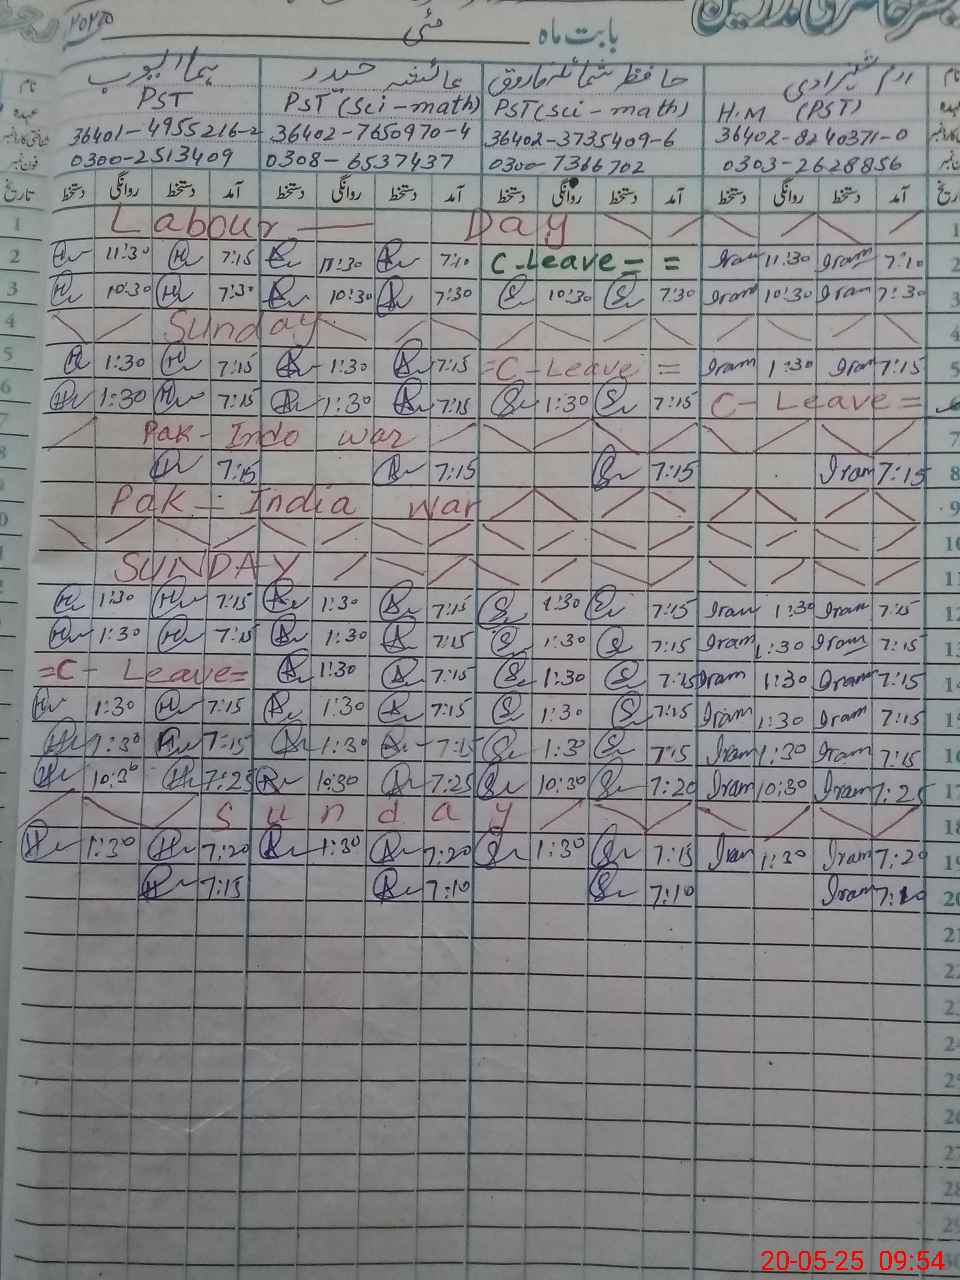 بابت ماہ مئی
ارم شہزادی حافظہ شمائلہ فاروق عائشہ حیدر ہما ایوب نام
H.M (PST) PST (Sci-math) PST (Sci-math) PST عہدہ
36402-8240371-0 36402-3735409-6 36402-7650970-4 36401-4955216-2
0303-2628856 0300-7366702 0308-6537437 0300-2513409
تاریخ آمد دستخط روانگی دستخط آمد دستخط روانگی دستخط آمد دستخط روانگی دستخط آمد دستخط روانگی دستخط تاریخ
1 Labour Day 1
2 11:30 7:15 11:30 7:10 C-Leave = = Iram 11:30 Iram 7:10 2
3 10:30 7:30 10:30 7:30 10:30 7:30 Iram 10:30 Iram 7:30 3
4 Sunday 4
5 1:30 7:15 1:30 7:15 =C-Leave = Iram 1:30 Iram 7:15 5
6 1:30 7:15 1:30 7:15 1:30 7:15 C-Leave =
7 Pak-Indo war 7
8 7:15 7:15 7:15 Iram 7:15 8
9 Pak-India war 9
10
SUNDAY 11
1:30 7:15 1:30 7:15 1:30 7:15 Iram 1:30 Iram 7:15 12
1:30 7:15 1:30 7:15 1:30 7:15 Iram 1:30 Iram 7:15 13
=C-Leave= 1:30 7:15 1:30 7:15 Iram 1:30 Iram 7:15 14
1:30 7:15 1:30 7:15 1:30 7:15 Iram 1:30 Iram 7:15 15
1:30 7:15 1:30 7:15 1:30 7:15 Iram 1:30 Iram 7:15 16
10:30 7:25 10:30 7:25 10:30 7:20 Iram 10:30 Iram 7:25 17
Sunday 18
1:30 7:20 1:30 7:20 1:30 7:15 Iram 1:30 Iram 7:20 19
7:15 7:10 7:10 Iram 20
21
22
23
24
25
26
27
28
29
30
20-05-25 09:54